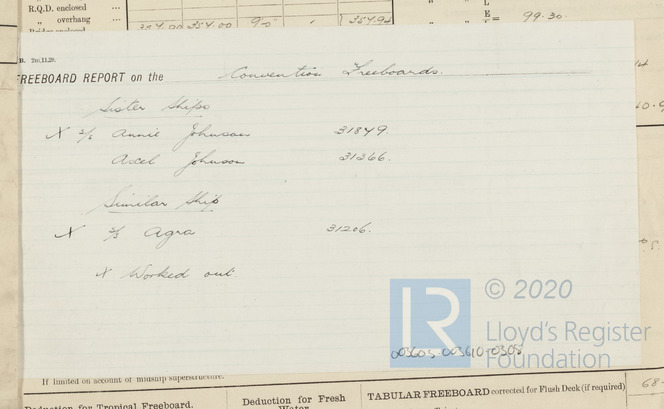 R.Q.D. enclosed ...
„ overhang ...
354.00 354.00 95 354.94
E = 99.30
B. 2m,11,29.
FREEBOARD REPORT on the Convention Freeboards.
Sister Ships
X s/s Annie Johnson 31849.
Axel Johnson 31366.
Similar Ship
X s/s Agra 31206.
X Worked out
© 2020
LR
Lloyd's Register
Foundation
003605-003610-0305
If limited on account of midship superstructure.
Deduction for Tropical Freeboard.
Deduction for Fresh Water.
TABULAR FREEBOARD corrected for Flush Deck (if required)
68